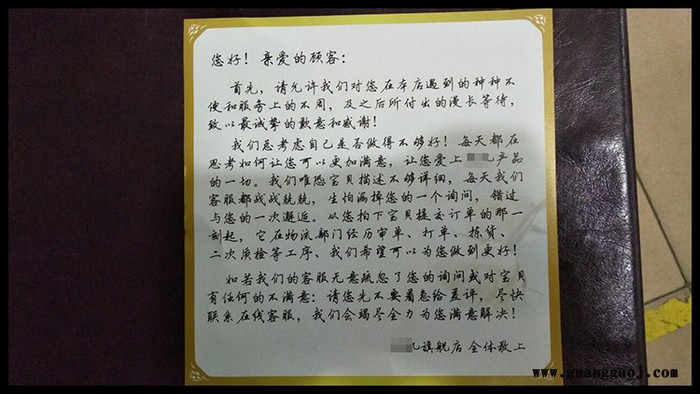 您好！亲爱的顾客：
首先，请允许我们对您在本店遇到的种种不
便和服务上的不周，及之后所付出的漫长等待，
致以最诚挚的歉意和感谢！
我们总考虑自己是否做得不够好！每天都在
思考如何让您可以更加满意，让您爱上 产品
的一切。我们唯恐宝贝描述不够详细，每天我们
客服都战战兢兢，生怕漏掉您的一个询问，错过
与您的一次邂逅。从您拍下宝贝提交订单的那一
刻起，它在物流部门经历审单、打单、拣货、
二次质检等工序、我们希望可以为您做到更好！
如若我们的客服无意疏忽了您的询问或对宝贝
有任何的不满意：请您先不要着急给差评，尽快
联系在线客服，我们会竭尽全力为您满意解决！
旗舰店 全体敬上
www.guangguoj.com